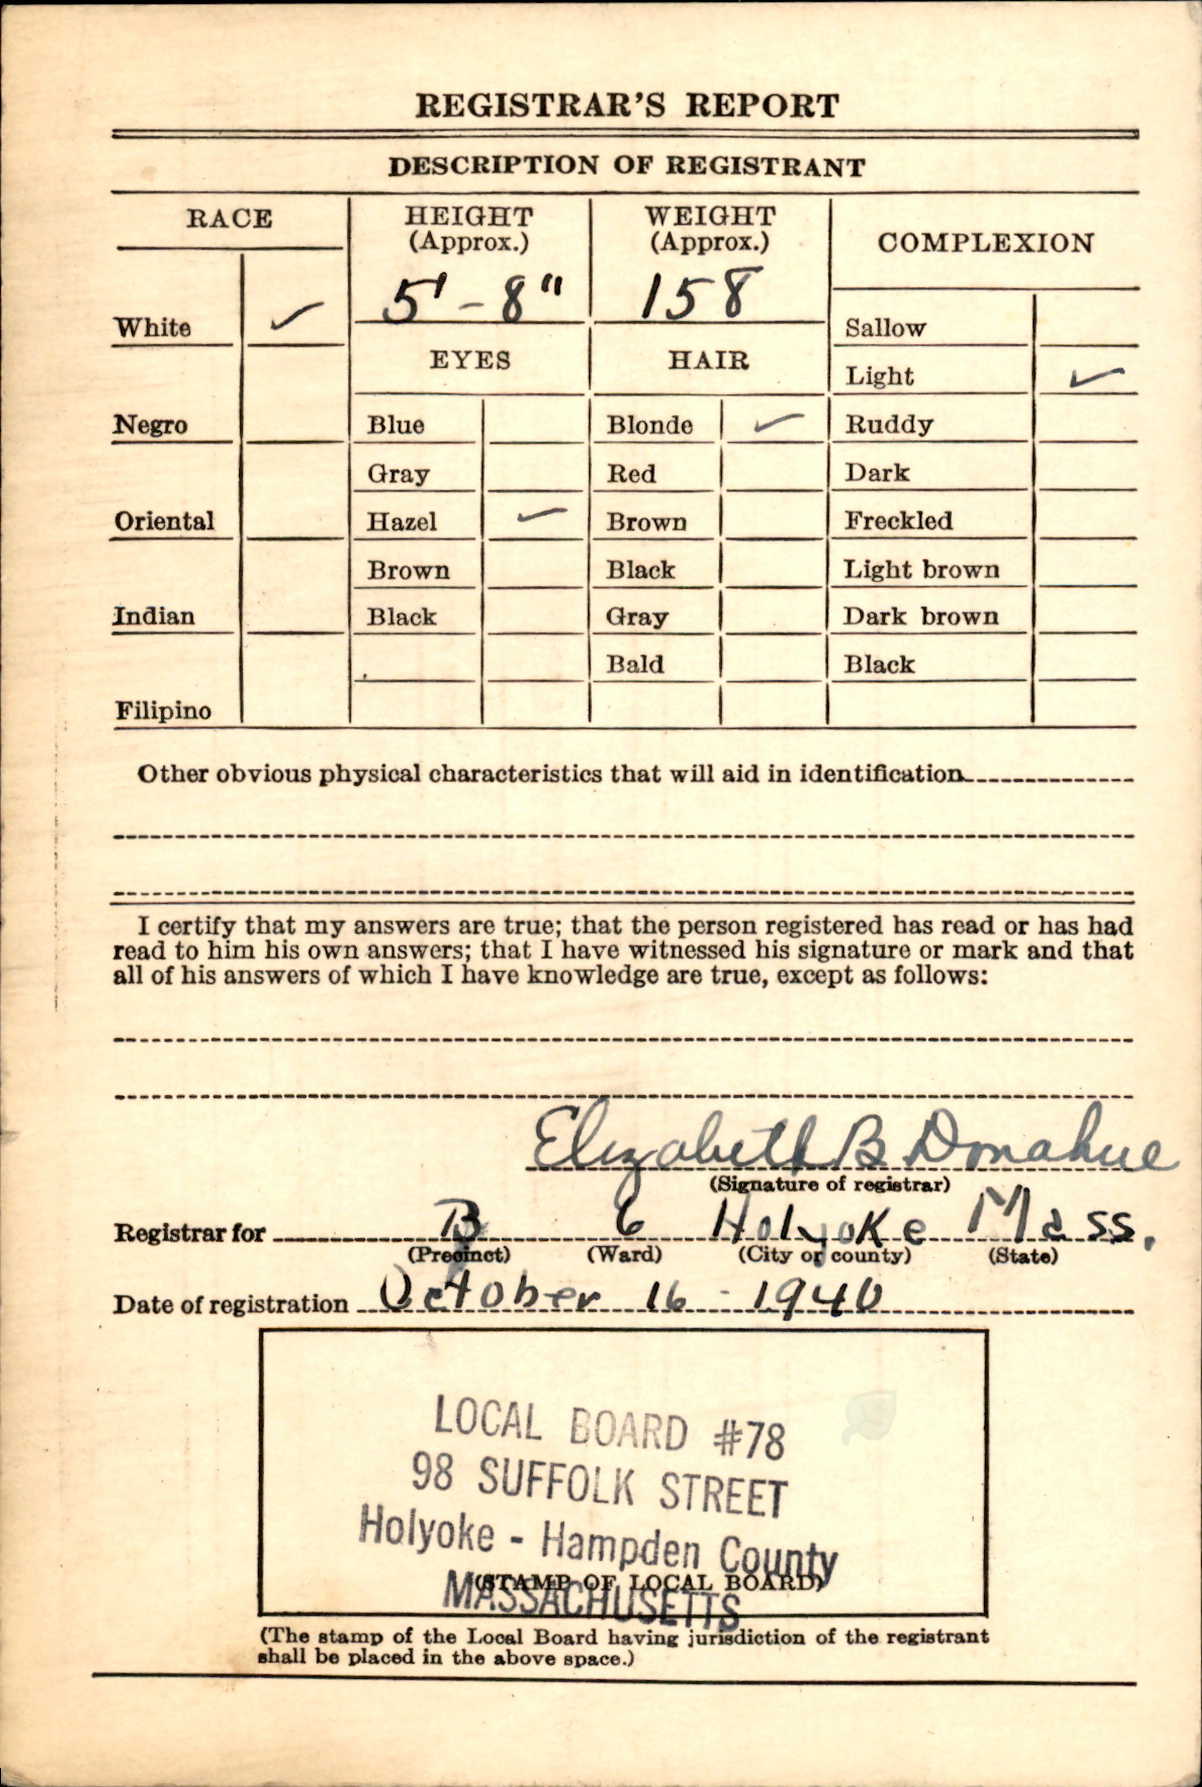 REGISTRAR'S REPORT
DESCRIPTION OF REGISTRANT
RACE
HEIGHT
(Approx.)
WEIGHT
(Approx.)
COMPLEXION
5' - 8"
158
White ✓
Sallow
EYES
HAIR
Light ✓
Negro
Blue
Blonde ✓
Ruddy
Gray
Red
Dark
Oriental
Hazel ✓
Brown
Freckled
Brown
Black
Light brown
Indian
Black
Gray
Dark brown
Bald
Black
Filipino
Other obvious physical characteristics that will aid in identification
I certify that my answers are true; that the person registered has read or has had
read to him his own answers; that I have witnessed his signature or mark and that
all of his answers of which I have knowledge are true, except as follows:
Elizabeth B Donahue
(Signature of registrar)
Registrar for B 6 Holyoke Mass.
(Precinct) (Ward) (City or county) (State)
Date of registration October 16 - 1940
LOCAL BOARD #78
98 SUFFOLK STREET
Holyoke - Hampden County
(STAMP OF LOCAL BOARD)
MASSACHUSETTS
(The stamp of the Local Board having jurisdiction of the registrant
shall be placed in the above space.)